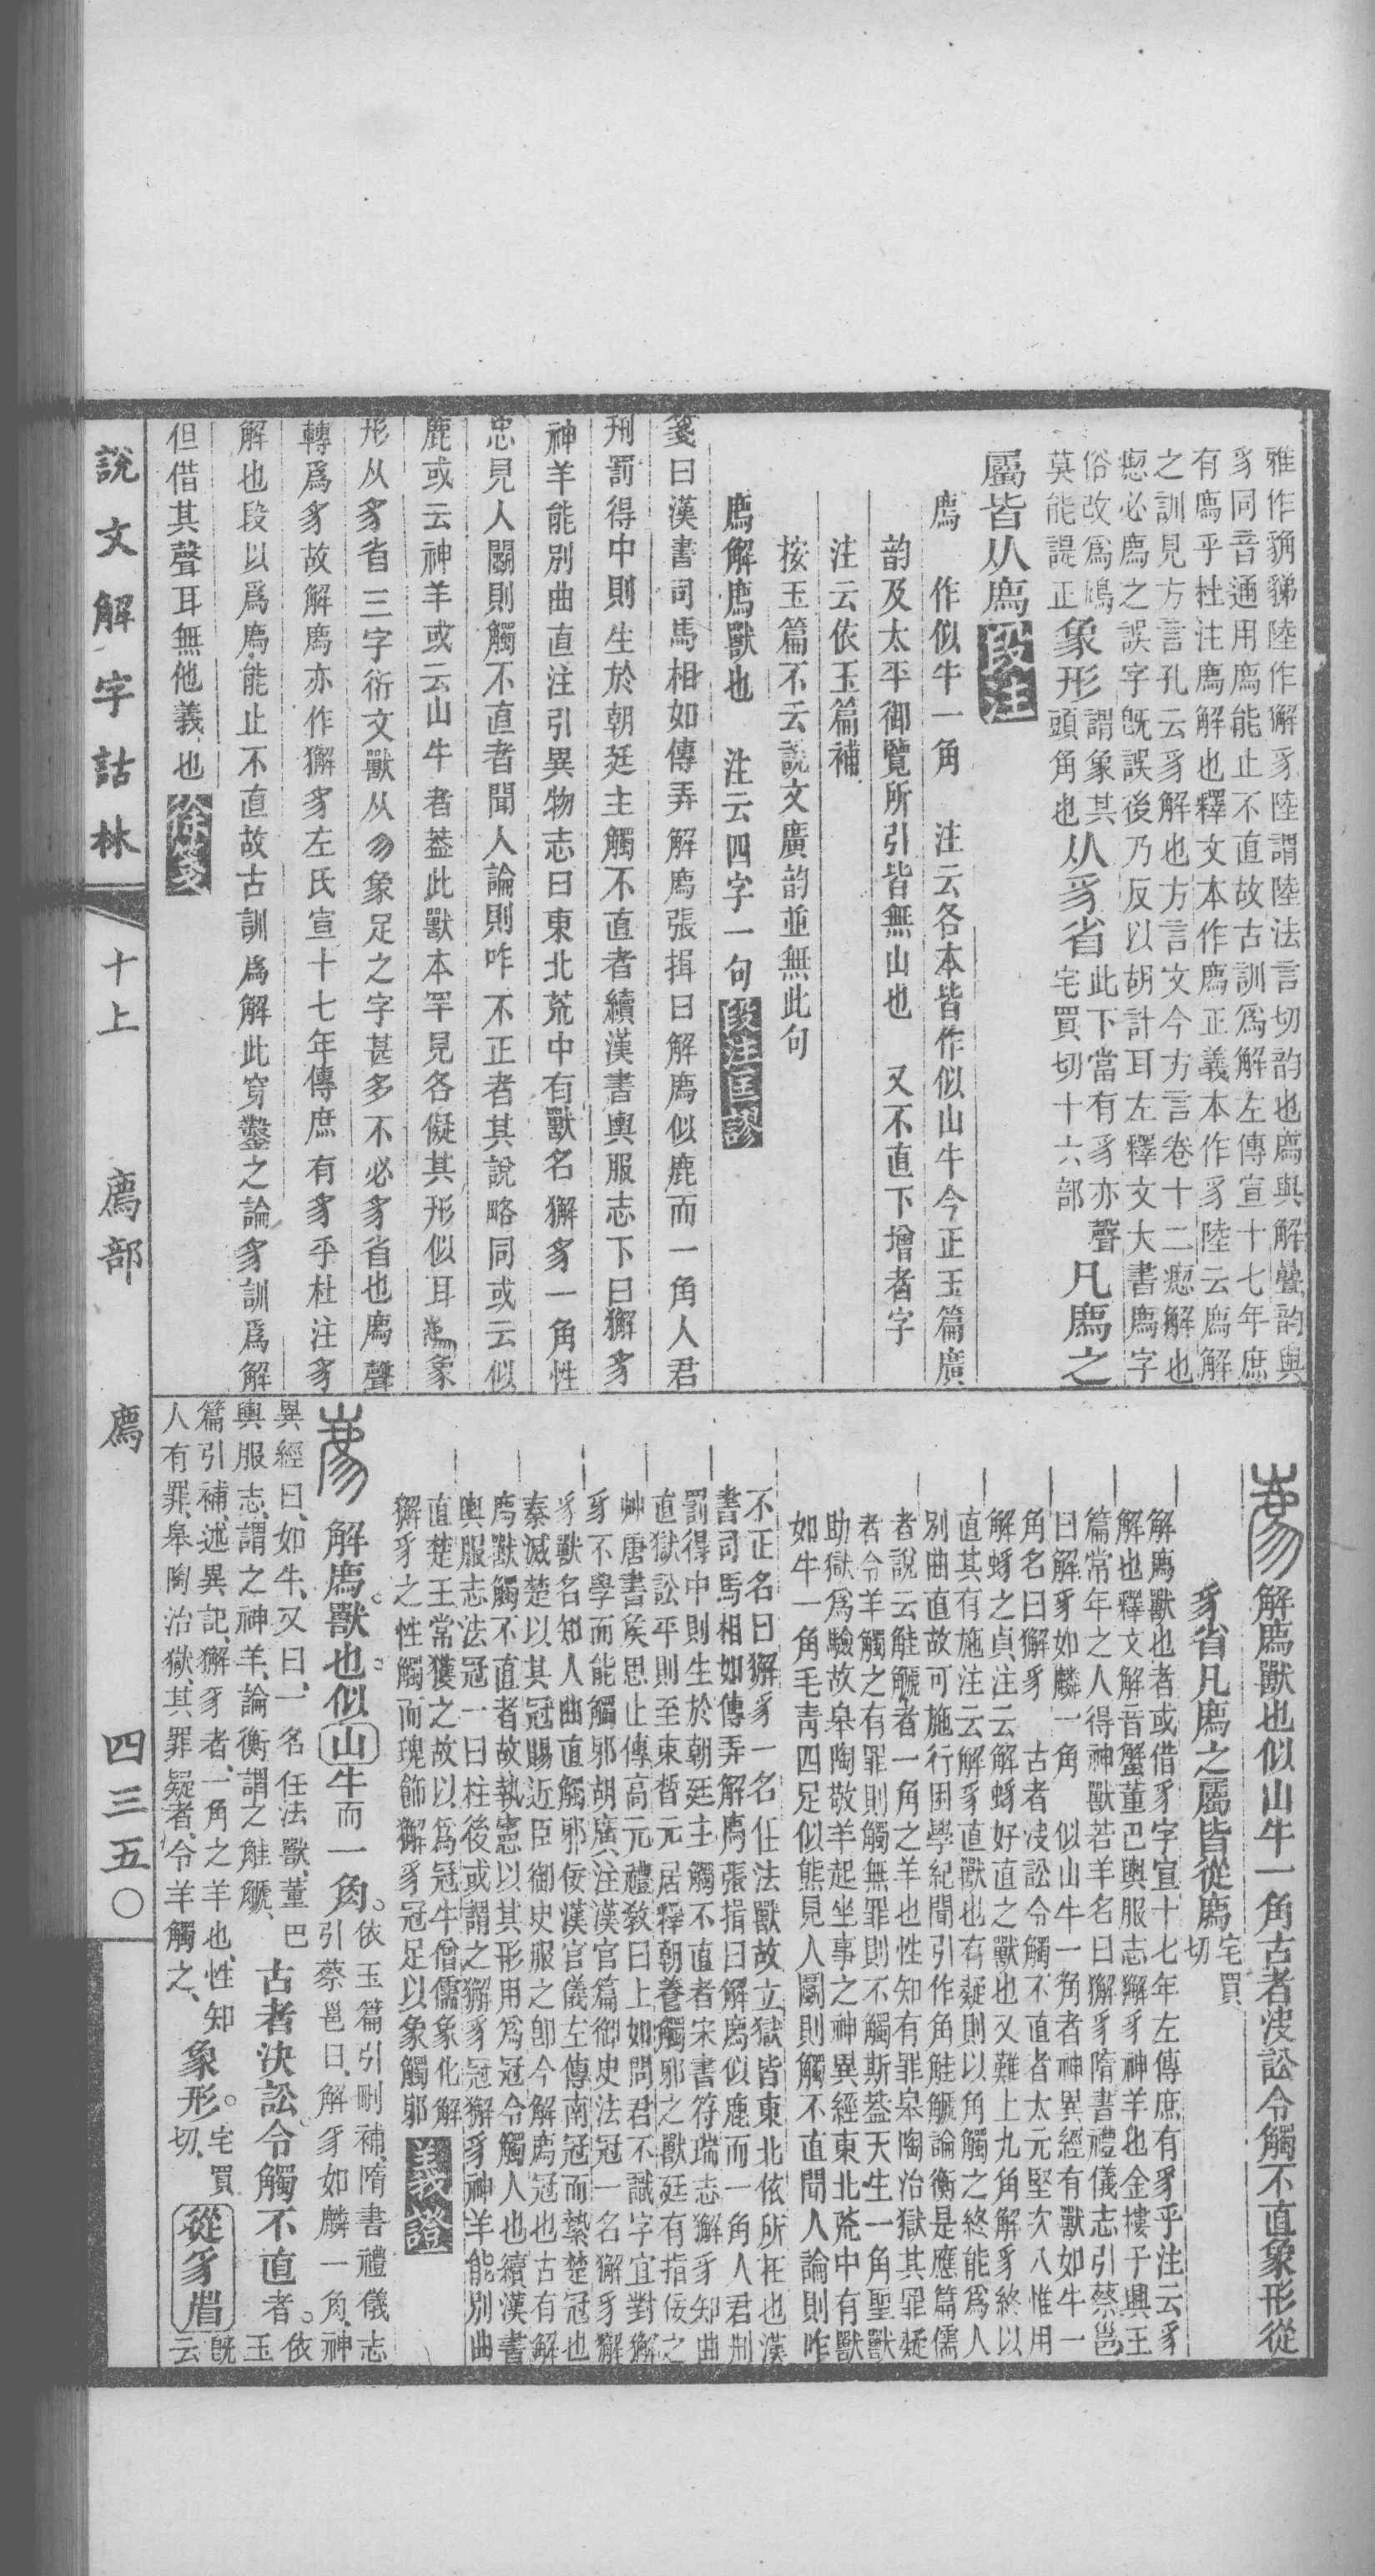 雅作貈豸陸作獬豸陸謂陸法言切韵也廌與解疊韵與
豸同音通用廌能止不直故古訓爲解左傳宣十七年庶
有廌乎杜注廌解也釋文本作廌正義本作豸陸云廌解
之訓見方言孔云豸解也方言文今方言卷十二瘛解也
瘛必廌之誤字旣誤後乃反以胡計耳左釋文大書廌字
俗改爲鳰
莫能諟正象形謂象其
頭角也从豸省此下當有豸亦聲
宅買切十六部凡廌之
屬皆从廌段注
廌　作似牛一角　注云各本皆作似山牛今正玉篇廣
韵及太平御覽所引皆無山也　又不直下增者字
注云依玉篇補
按玉篇不云說文廣韵並無此句
廌解廌獸也　注云四字一句段注匡謬
箋曰漢書司馬相如傳弄解廌張揖曰解廌似鹿而一角人君
刑罰得中則生於朝廷主觸不直者續漢書輿服志下曰獬豸
神羊能別曲直注引異物志曰東北荒中有獸名獬豸一角性
忠見人鬭則觸不直者聞人論則咋不正者其說略同或云似
鹿或云神羊或云山牛者葢此獸本罕見各儗其形似耳象
形从豸省三字衍文獸从勿象足之字甚多不必豸省也廌聲
轉爲豸故解廌亦作獬豸左氏宣十七年傳庶有豸乎杜注豸
解也段以爲廌能止不直故古訓爲解此穿鑿之論豸訓爲解
但借其聲耳無他義也徐箋
解廌獸也似山牛一角古者決訟令觸不直象形從
豸省凡廌之屬皆從廌宅買切
解廌獸也者或借豸字宣十七年左傳庶有豸乎注云豸
解也釋文解音蟹董巴輿服志獬豸神羊也金樓子興王
篇常年之人得神獸若羊名曰獬豸隋書禮儀志引蔡邕
曰解豸如麟一角　似山牛一角者神異經有獸如牛一
角名曰解豸　古者決訟令觸不直者太元堅次八惟用
解蛥之貞注云解蛥好直之獸也又難上九角解豸終以
直其有施注云解豸直獸也有疑則以角觸之終能爲人
別曲直故可施行困學紀聞引作角觟𧣾論衡是應篇儒
者說云觟𧣾者一角之羊也性知有罪皋陶治獄其罪疑
者令羊觸之有罪則觸無罪則不觸斯葢天生一角聖獸
助獄爲驗故皋陶敬羊起坐事之神異經東北荒中有獸
如牛一角毛青四足似熊見人鬭則觸不直聞人論則咋
不正名曰獬豸一名任法獸故立獄皆東北依所在也漢
書司馬相如傳弄解廌張揖曰解廌似鹿而一角人君刑
罰得中則生於朝廷主觸不直者宋書符瑞志獬豸知曲
直獄訟平則至東晳元居釋朝養觸邪之獸廷有指佞之
艸唐書矦思止傳高元禮敎曰上如問君不識字宜對獬
豸不學而能觸邪胡廣注漢官篇御史法冠一名獬豸獬
豸獸名知人曲直觸邪佞漢官儀左傳南冠而縶楚冠也
秦滅楚以其冠賜近臣御史服之卽今解廌冠也古有解
廌獸觸不直者故執憲以其形用爲冠令觸人也續漢書
輿服志法冠一曰柱後或謂之獬豸冠獬豸神羊能別曲
直楚王常獲之故以爲冠牛僧儒象化解
獬豸之性觸而瑰飾獬豸冠足以象觸邪義證
解廌。獸也。似山牛而一角。依玉篇引刪補隋書禮儀志
引蔡邕曰、解豸如麟一角、神
異經曰、如牛、又曰、一名任法獸、董巴
輿服志謂之神羊、論衡謂之觟𧣾、古者決訟。令觸不直者。依
玉
篇引補、述異記、獬豸者、一角之羊也、性知
人有罪、皋陶治獄、其罪疑者、令羊觸之、象形。宅買
切、從豸省旣
云
說文解字詁林　十上　廌部　廌　四三五〇